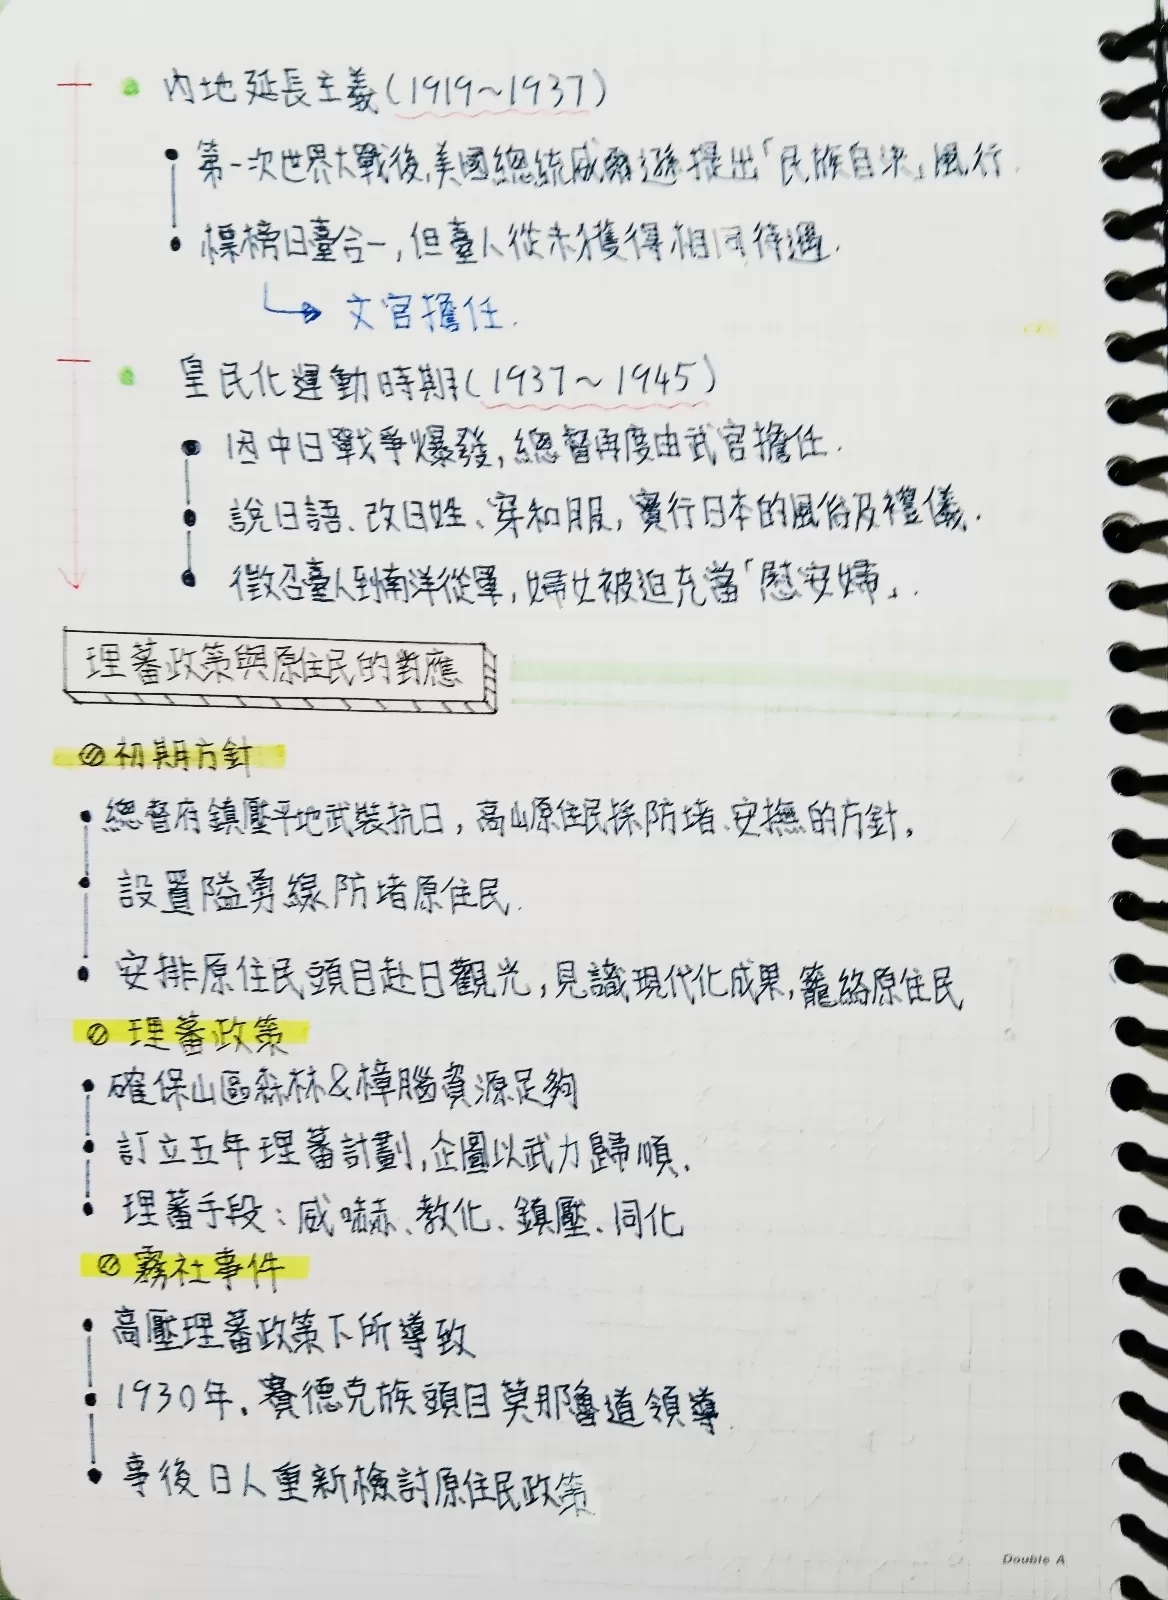 內地延長主義(1919~1937)
第一次世界大戰後,美國總統威爾遜提出「民族自決」風行.
標榜日臺合一,但臺人從未獲得相同待遇.
文官擔任.
皇民化運動時期(1937~1945)
因中日戰爭爆發,總督再度由武官擔任.
說日語、改日姓、穿和服,實行日本的風俗及禮儀.
徵召臺人到南洋從軍,婦女被迫充當「慰安婦」.
理蕃政策與原住民的對應
初期方針
總督府鎮壓平地武裝抗日,高山原住民採防堵、安撫的方針。
設置隘勇線防堵原住民.
安排原住民頭目赴日觀光,見識現代化成果,籠絡原住民
理蕃政策
確保山區森林&樟腦資源足夠
訂立五年理蕃計劃,企圖以武力歸順.
理蕃手段:威嚇、教化、鎮壓、同化
霧社事件
高壓理蕃政策下所導致
1930年.賽德克族頭目莫那魯道領導
事後日人重新檢討原住民政策
Double A